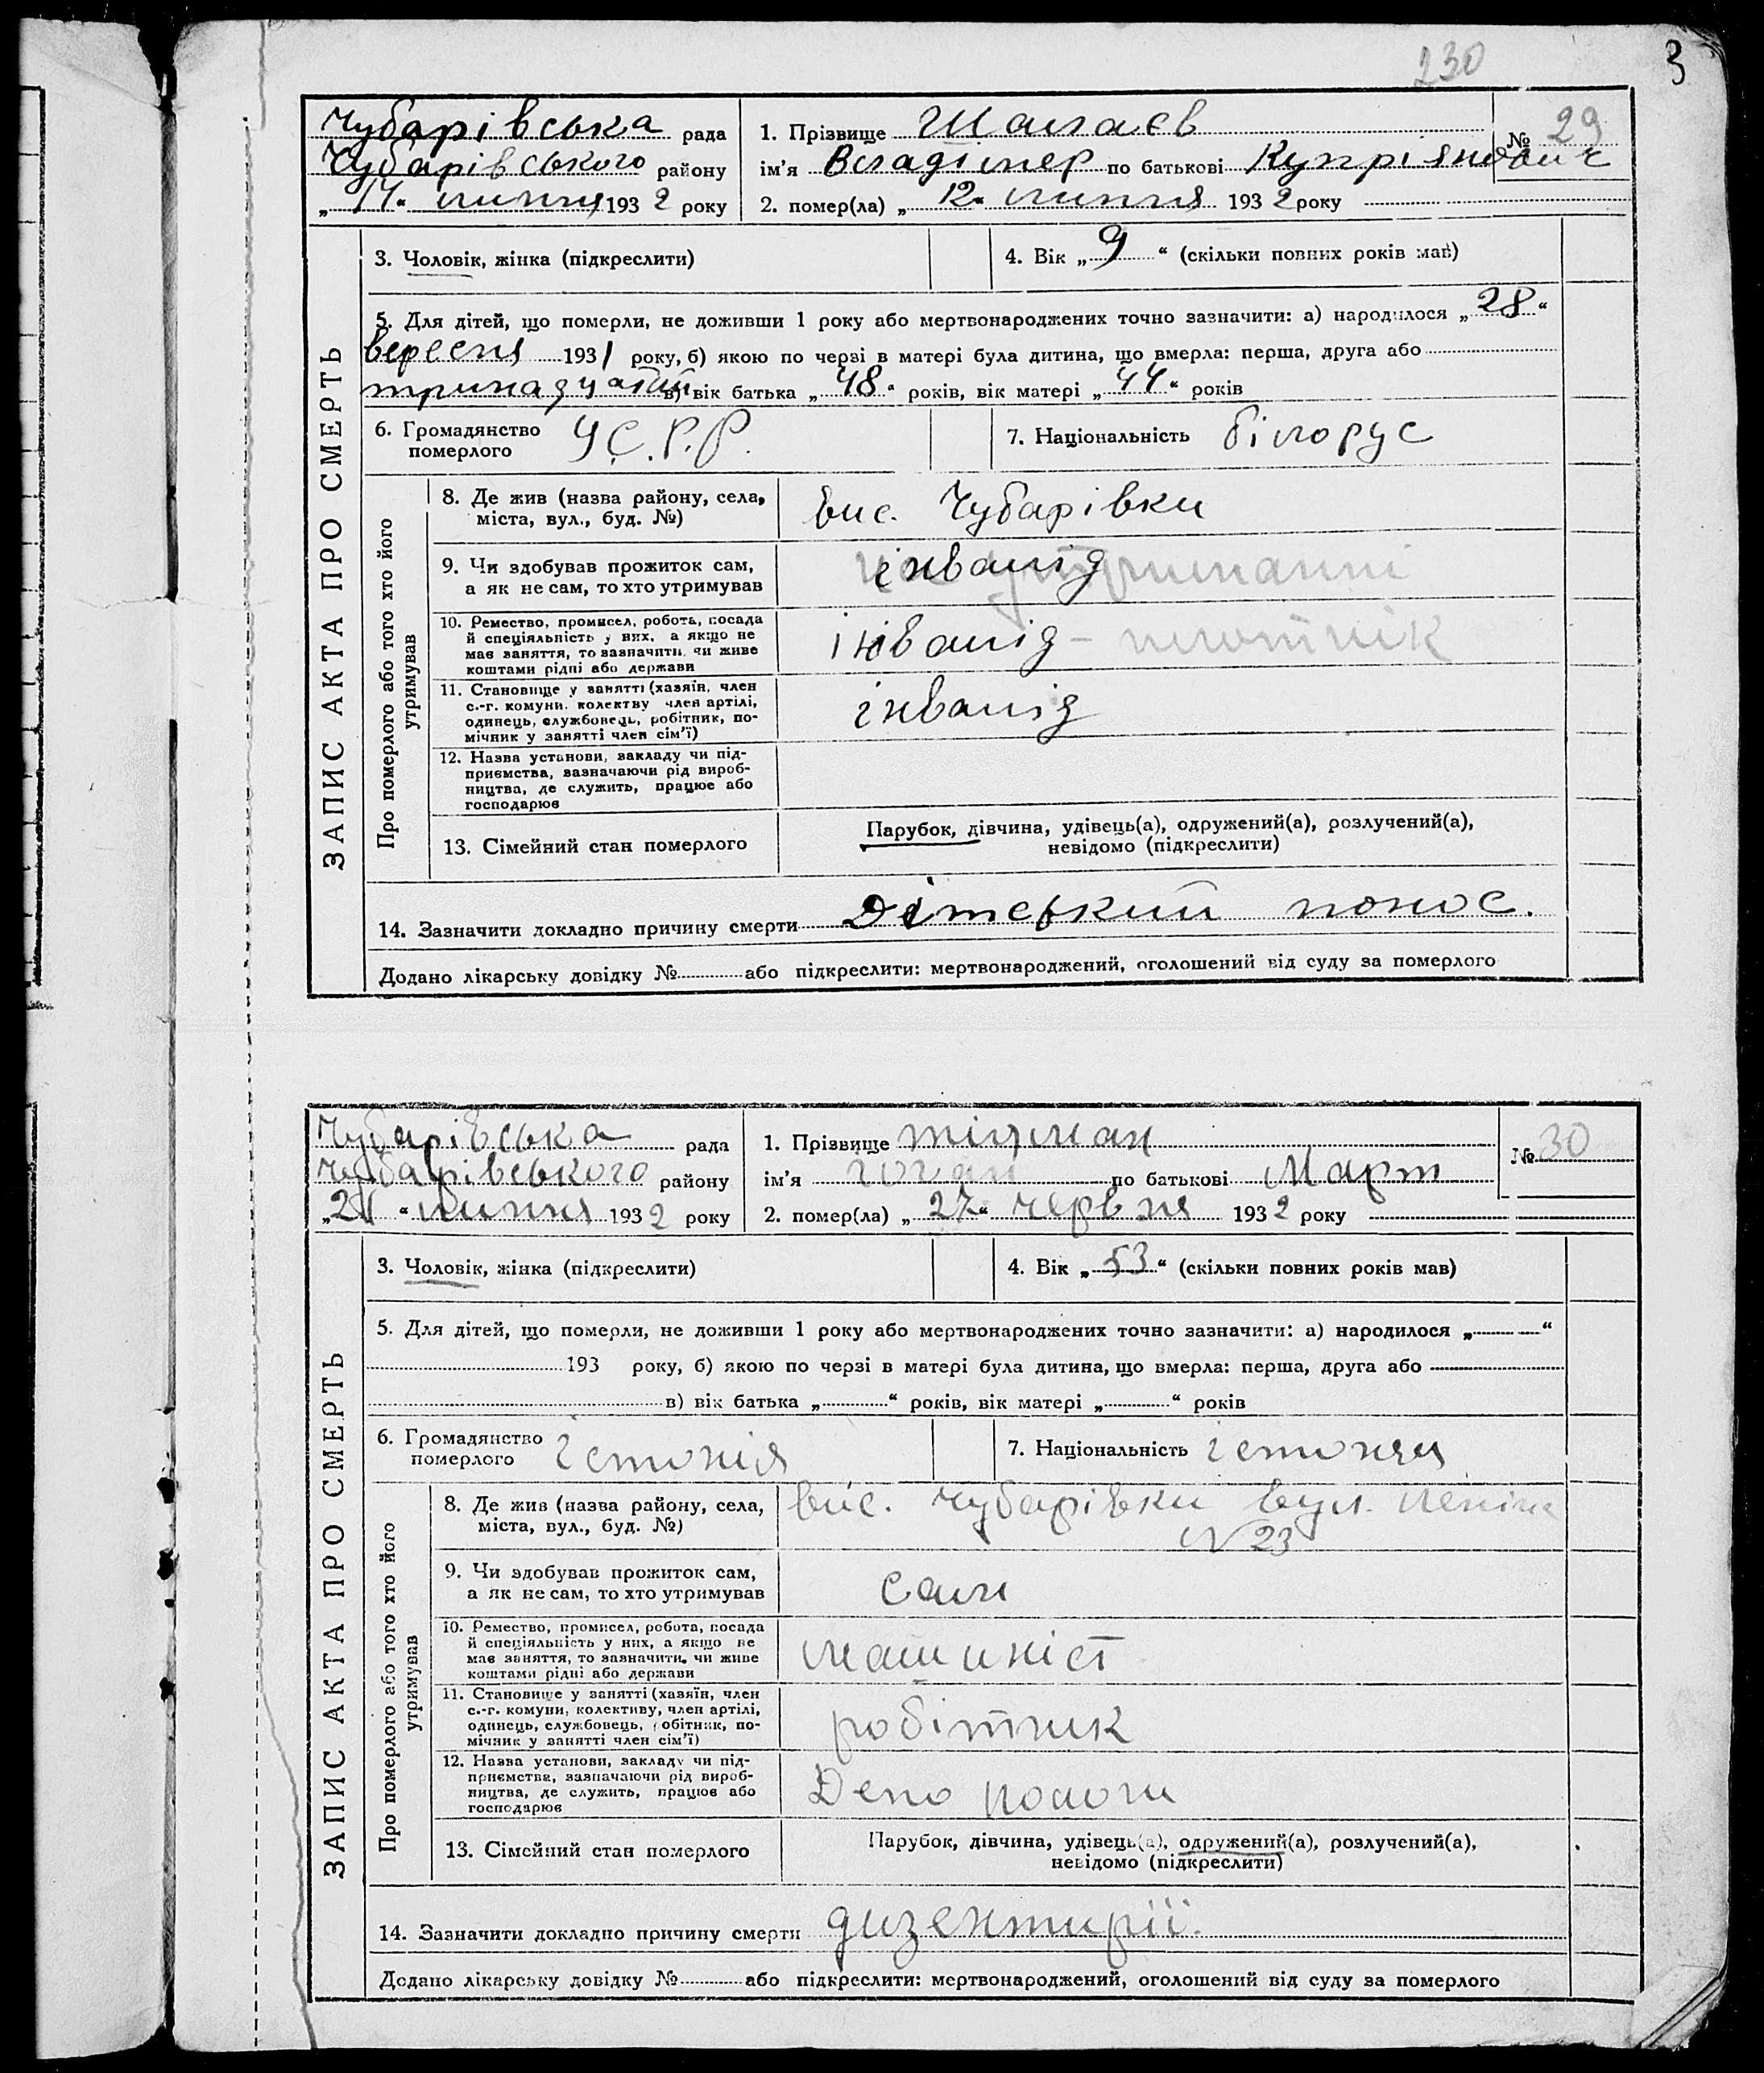 230
3
Чубарівська рада
Чубарівського району
„ 14 “ липня 1932 року
1. Прізвище Шалаєв
№ 29
ім'я Владімер по батькові Купріянович
2. помер(ла) „ 12 “ липня 1932 року
ЗАПИС АКТА ПРО СМЕРТЬ
3. Чоловік, жінка (підкреслити)
4. Вік „ 9 “ (скільки повних років мав)
5. Для дітей, що померли, не доживши 1 року або мертвонароджених точно зазначити: а) народилося „ 28 “
вересня 1931 року, б) якою по черзі в матері була дитина, що вмерла: перша, друга або
тринадцятий в) вік батька „ 48 “ років, вік матері „ 44 “ років
6. Громадянство
померлого
У.С.Р.Р.
7. Національність білорус
Про померлого або того хто його
утримував
8. Де жив (назва району, села,
міста, вул., буд. №)
вис. Чубарівки
9. Чи здобував прожиток сам,
а як не сам, то хто утримував
інвалід
10. Ремество, промисел, робота, посада
й спеціяльність у них, а якщо не
має заняття, то зазначити, чи живе
коштами рідні або держави
інвалід - плотнік
11. Становище у занятті (хазяїн, член
с.-г. комуни, колективу член артілі,
одинець, службовець, робітник, по-
мічник у занятті член сім'ї)
інвалід
12. Назва установи, закладу чи під-
приємства, зазначаючи рід вироб-
ництва, де служить, працює або
господарює
13. Сімейний стан померлого
Парубок, дівчина, удівець(а), одружений(а), розлучений(а),
невідомо (підкреслити)
14. Зазначити докладно причину смерти Дітський понос.
Додано лікарську довідку № або підкреслити: мертвонароджений, оголошений від суду за померлого
Чубарівська рада
Чубарівського району
„ 21 “ липня 1932 року
1. Прізвище тіцман
№ 30
ім'я по батькові Март
2. помер(ла) „ 27 “ червня 1932 року
ЗАПИС АКТА ПРО СМЕРТЬ
3. Чоловік, жінка (підкреслити)
4. Вік „ 53 “ (скільки повних років мав)
5. Для дітей, що померли, не доживши 1 року або мертвонароджених точно зазначити: а) народилося „ “
193 року, б) якою по черзі в матері була дитина, що вмерла: перша, друга або
в) вік батька „ “ років, вік матері „ “ років
6. Громадянство
померлого
істонія
7. Національність істонця
Про померлого або того хто його
утримував
8. Де жив (назва району, села,
міста, вул., буд. №)
вис. Чубарівки вул. Леніна
N 23
9. Чи здобував прожиток сам,
а як не сам, то хто утримував
сам
10. Ремество, промисел, робота, посада
й спеціяльність у них, а якщо не
має заняття, то зазначити, чи живе
коштами рідні або держави
машиніст
11. Становище у занятті (хазяїн, член
с.-г. комуни, колективу, член артілі,
одинець, службовець, робітник, по-
мічник у занятті член сім'ї)
робітник
12. Назва установи, закладу чи під-
приємства, зазначаючи рід вироб-
ництва, де служить, працює або
господарює
Депо пологи
13. Сімейний стан померлого
Парубок, дівчина, удівець(а), одружений(а), розлучений(а),
невідомо (підкреслити)
14. Зазначити докладно причину смерти дизентирії.
Додано лікарську довідку № або підкреслити: мертвонароджений, оголошений від суду за померлого